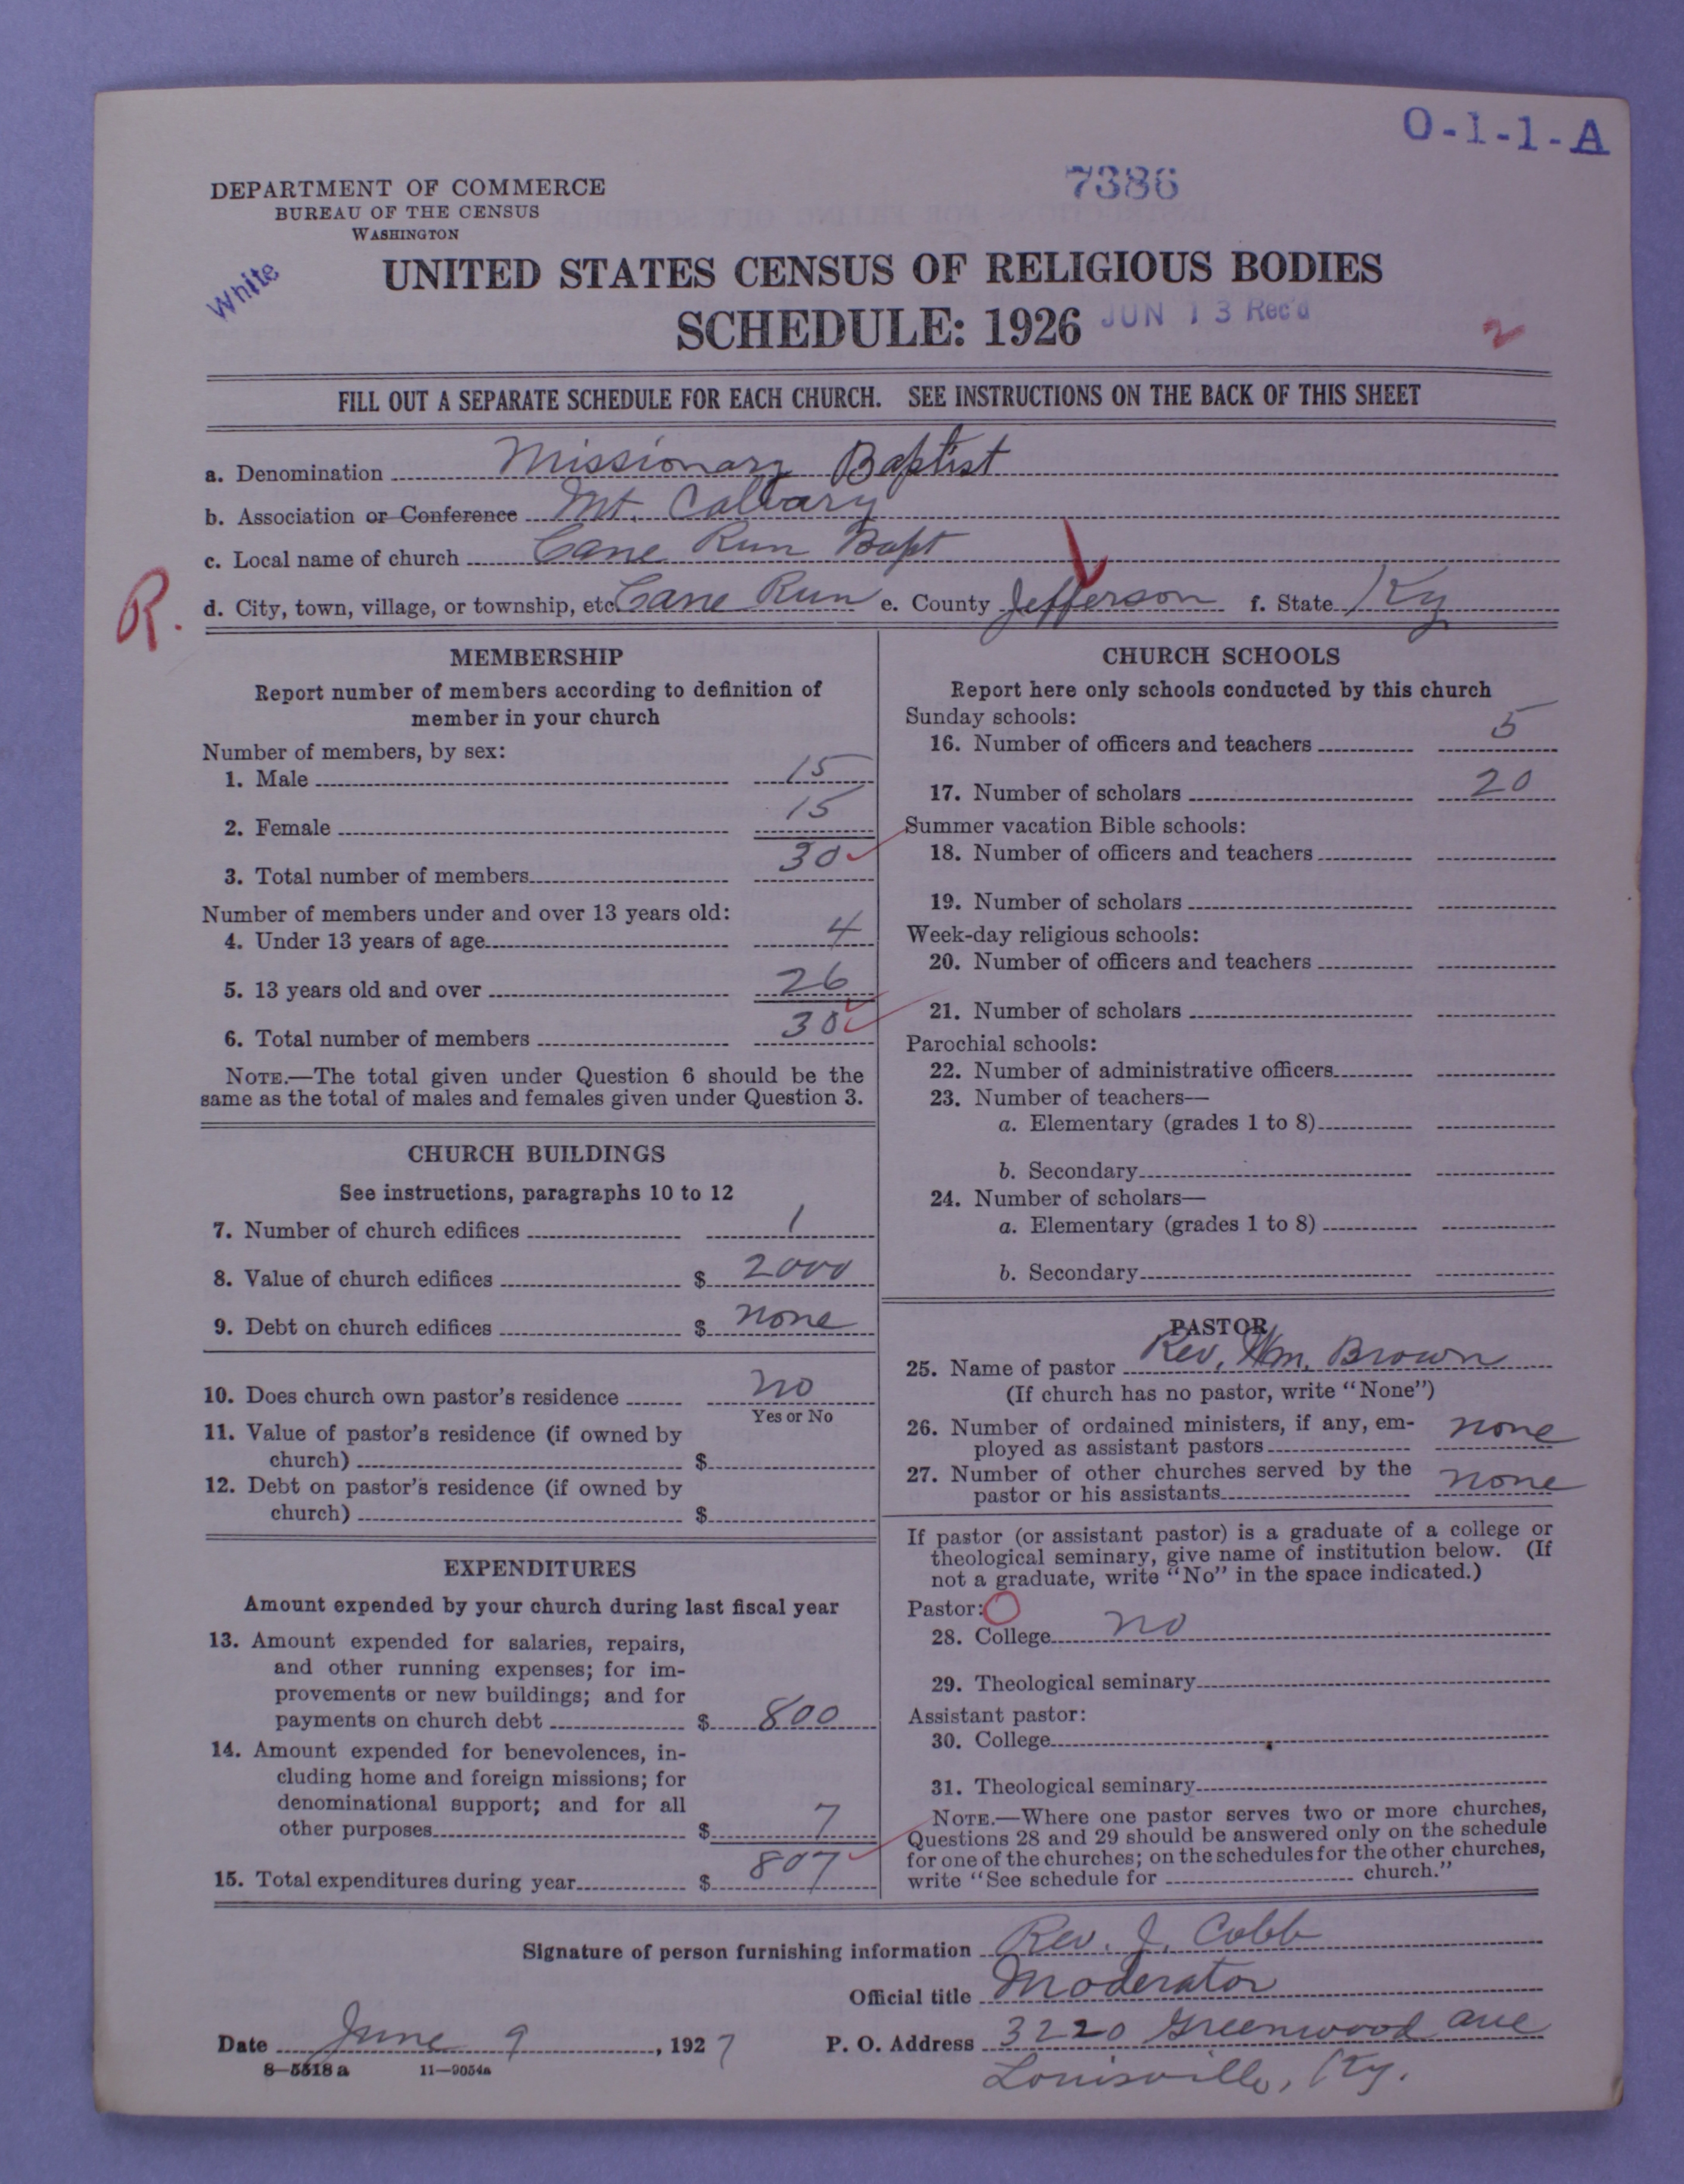 O-1-1-A
DEPARTMENT OF COMMERCE
BUREAU OF THE CENSUS
WASHINGTON
7386
White
UNITED STATES CENSUS OF RELIGIOUS BODIES
SCHEDULE: 1926
JUN 13 Rec'd
2
FILL OUT A SEPARATE SCHEDULE FOR EACH CHURCH. SEE INSTRUCTIONS ON THE BACK OF THIS SHEET
a. Denomination Missionary Baptist
b. Association or Conference Mt. Calvary
c. Local name of church Cane Run Bapt
R.
d. City, town, village, or township, etc. Cane Run e. County Jefferson f. State Ky
MEMBERSHIP
Report number of members according to definition of
member in your church
Number of members, by sex:
1. Male 15
2. Female 15
3. Total number of members 30
Number of members under and over 13 years old:
4. Under 13 years of age 4
5. 13 years old and over 26
6. Total number of members 30
NOTE.—The total given under Question 6 should be the
same as the total of males and females given under Question 3.
CHURCH BUILDINGS
See instructions, paragraphs 10 to 12
7. Number of church edifices 1
8. Value of church edifices $ 2000
9. Debt on church edifices $ none
10. Does church own pastor's residence no
Yes or No
11. Value of pastor's residence (if owned by
church) $
12. Debt on pastor's residence (if owned by
church) $
EXPENDITURES
Amount expended by your church during last fiscal year
13. Amount expended for salaries, repairs,
and other running expenses; for im-
provements or new buildings; and for
payments on church debt $ 800
14. Amount expended for benevolences, in-
cluding home and foreign missions; for
denominational support; and for all
other purposes $ 7
15. Total expenditures during year $ 807
CHURCH SCHOOLS
Report here only schools conducted by this church
Sunday schools:
16. Number of officers and teachers 5
17. Number of scholars 20
Summer vacation Bible schools:
18. Number of officers and teachers
19. Number of scholars
Week-day religious schools:
20. Number of officers and teachers
21. Number of scholars
Parochial schools:
22. Number of administrative officers
23. Number of teachers—
a. Elementary (grades 1 to 8)
b. Secondary
24. Number of scholars—
a. Elementary (grades 1 to 8)
b. Secondary
PASTOR
25. Name of pastor Rev. Wm. Brown
(If church has no pastor, write "None")
26. Number of ordained ministers, if any, em-
ployed as assistant pastors none
27. Number of other churches served by the
pastor or his assistants none
If pastor (or assistant pastor) is a graduate of a college or
theological seminary, give name of institution below. (If
not a graduate, write "No" in the space indicated.)
Pastor: O
28. College no
29. Theological seminary
Assistant pastor:
30. College
31. Theological seminary
NOTE.—Where one pastor serves two or more churches,
Questions 28 and 29 should be answered only on the schedule
for one of the churches; on the schedules for the other churches,
write "See schedule for church."
Signature of person furnishing information Rev. J. Cobb
Official title Moderator
Date June 9, 1927 P. O. Address 3220 Greenwood ave
8-5318 a 11-9054a
Louisville, Ky.